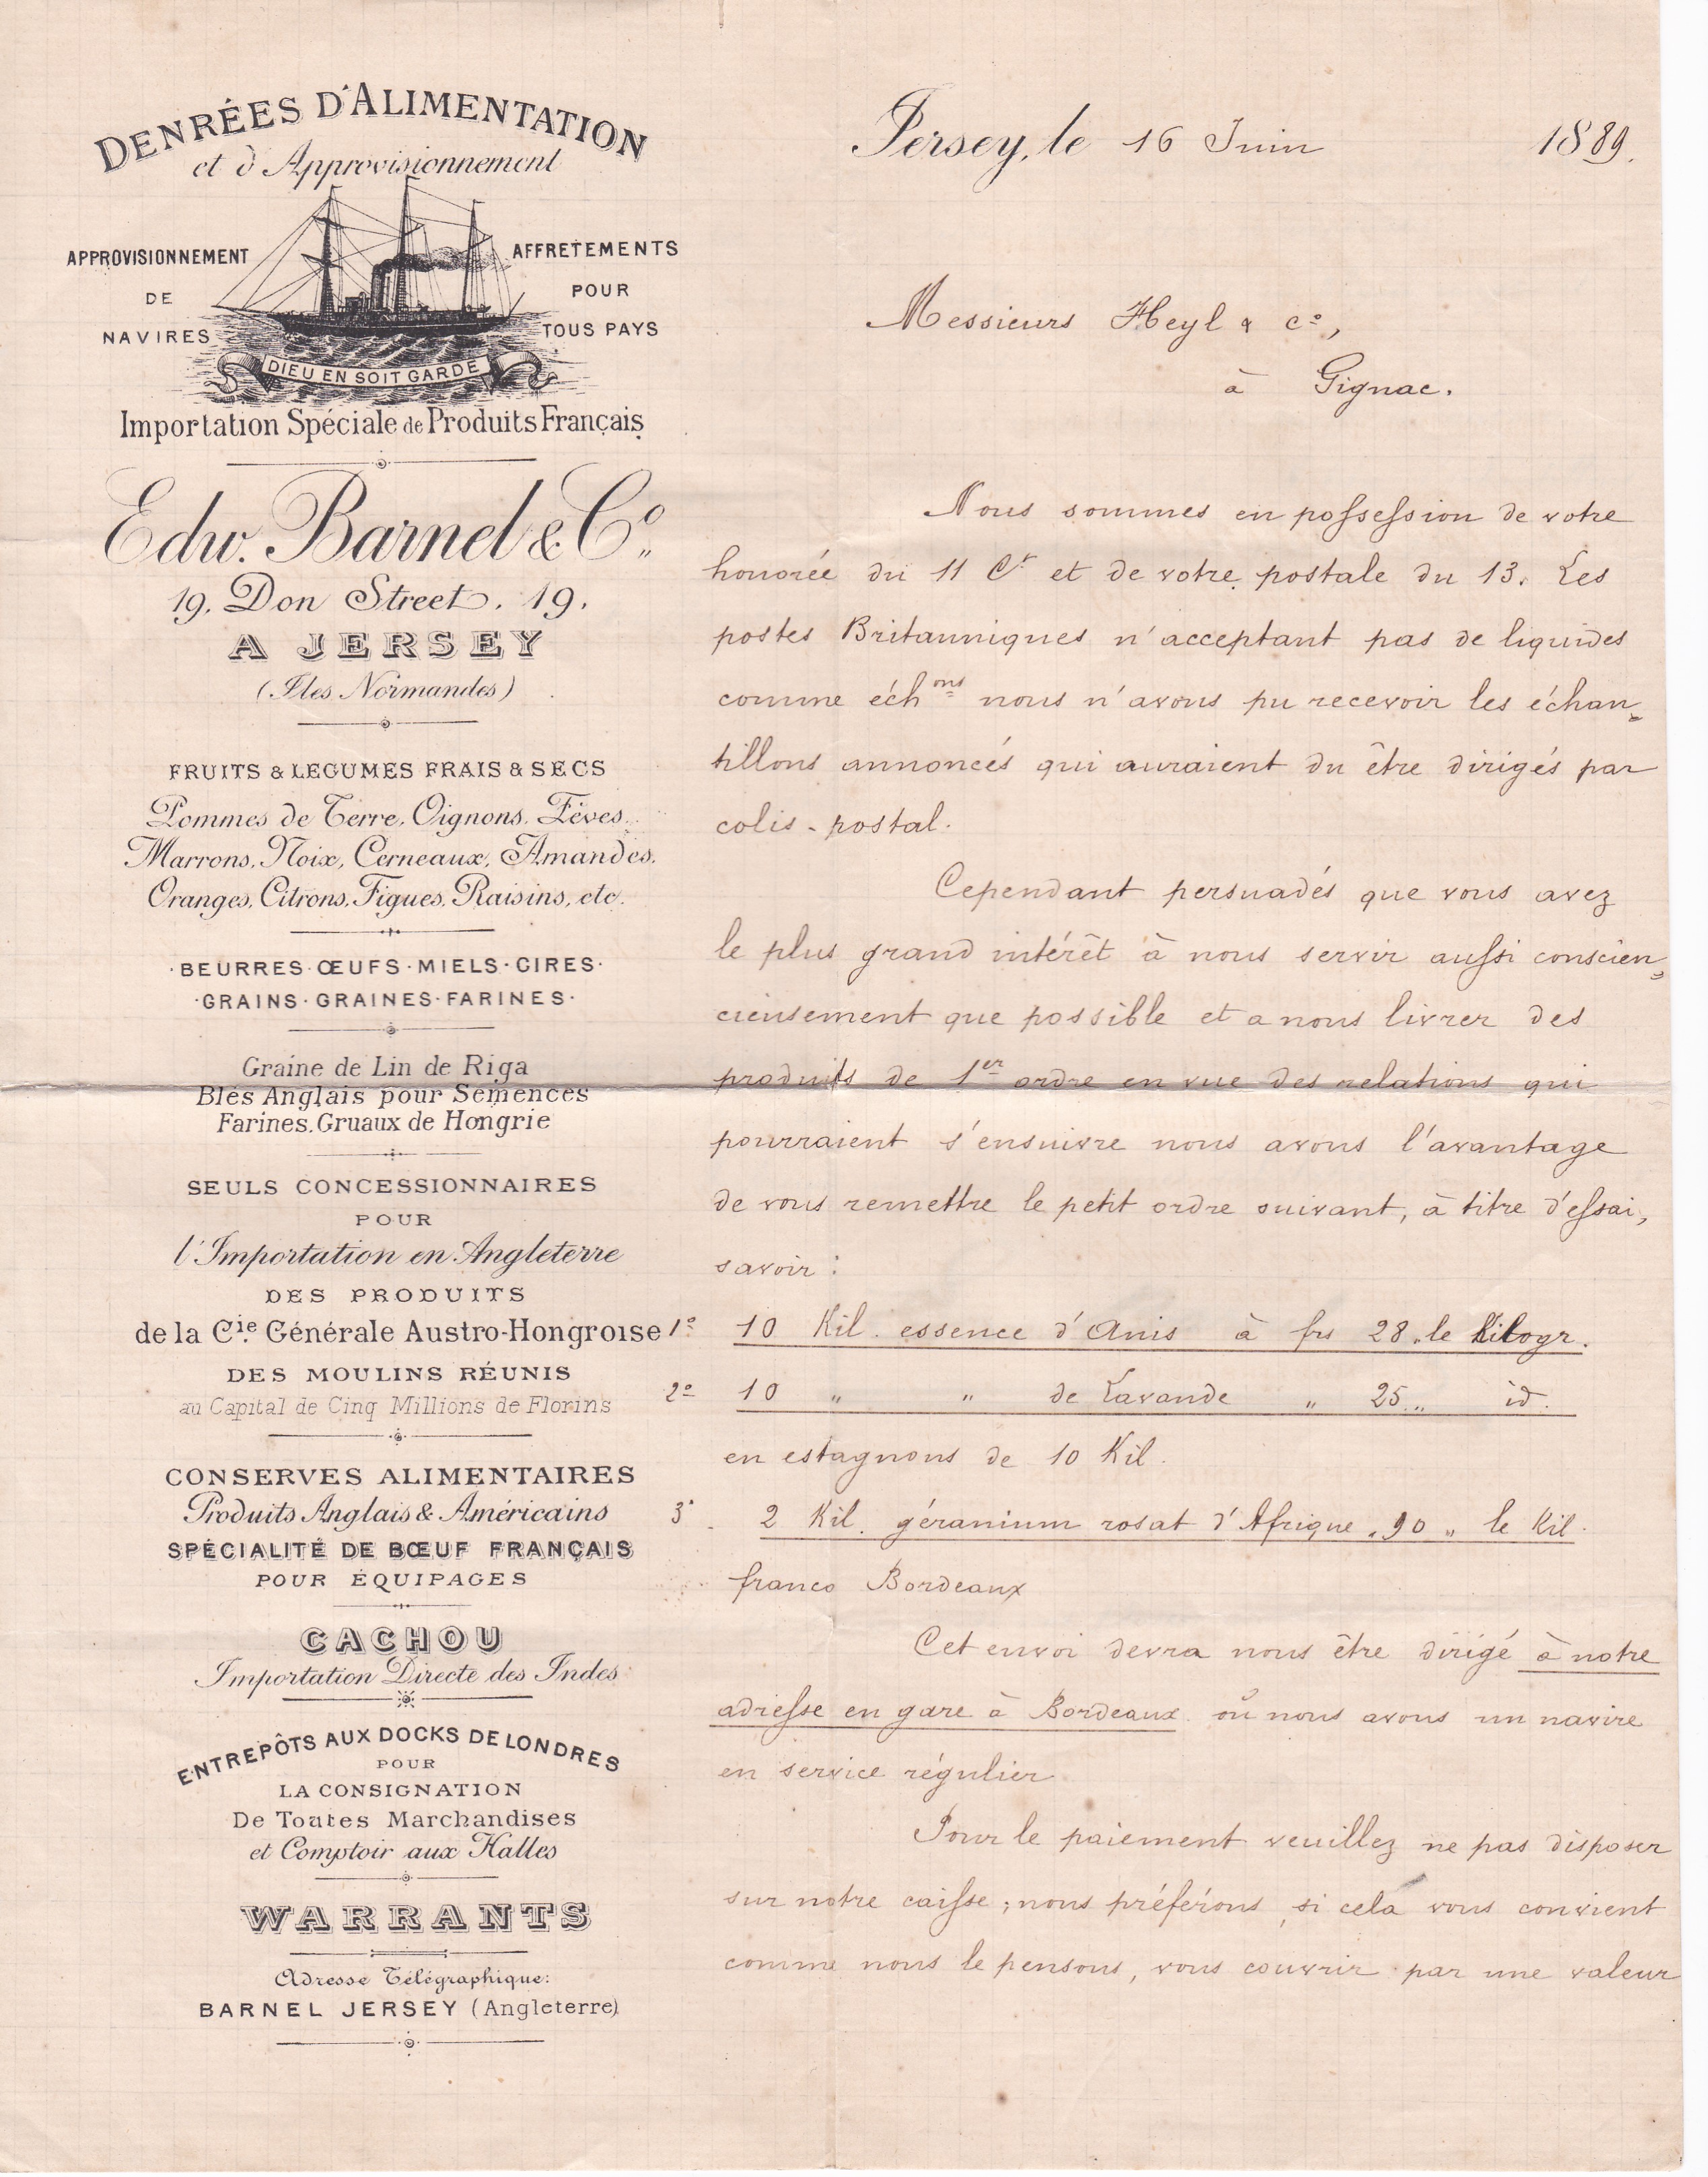 DENRÉES D'ALIMENTATION
et d'Approvisionnement
APPROVISIONNEMENT
DE
NAVIRES
AFFRETEMENTS
POUR
TOUS PAYS
DIEU EN SOIT GARDE
Importation Spéciale de Produits Français
Edw. Barnel & Co.
19, Don Street, 19,
A JERSEY
(Iles Normandes)
FRUITS & LEGUMES FRAIS & SECS
Pommes de Terre, Oignons, Fèves,
Marrons, Noix, Cerneaux, Amandes,
Oranges, Citrons, Figues, Raisins, etc.
·BEURRES·ŒUFS·MIELS·CIRES·
·GRAINS·GRAINES·FARINES·
Graine de Lin de Riga
Blés Anglais pour Semences
Farines, Gruaux de Hongrie
SEULS CONCESSIONNAIRES
POUR
l'Importation en Angleterre
DES PRODUITS
de la Cie Générale Austro-Hongroise
DES MOULINS RÉUNIS
au Capital de Cinq Millions de Florins
CONSERVES ALIMENTAIRES
Produits Anglais & Américains
SPÉCIALITÉ DE BŒUF FRANÇAIS
POUR ÉQUIPAGES
CACHOU
Importation Directe des Indes
ENTREPÔTS AUX DOCKS DE LONDRES
POUR
LA CONSIGNATION
De Toutes Marchandises
et Comptoir aux Halles
WARRANTS
Adresse Télégraphique:
BARNEL JERSEY (Angleterre)
Jersey, le 16 Juin 1889.
Messieurs Heyl & Co,
à Gignac.
Nous sommes en possession de votre
honorée du 11 Ct et de votre postale du 13. Les
postes Britanniques n'acceptant pas de liquides
comme échons nous n'avons pu recevoir les échan=
tillons annoncés qui auraient du être dirigés par
colis-postal.
Cependant persuadés que vous avez
le plus grand intérêt à nous servir aussi conscien=
cieusement que possible et a nous livrer des
produits de 1er ordre en vue des relations qui
pourraient s'ensuivre nous avons l'avantage
de vous remettre le petit ordre suivant, à titre d'essai,
savoir :
1o 10 Kil. essence d'Anis à frs 28. le Kilogr.
2o 10 " " de Lavande " 25 " id.
en estagnons de 10 Kil.
3o 2 Kil. géranium rosat d'Afrique " 90 " le Kil.
franco Bordeaux
Cet envoi devra nous être dirigé à notre
adresse en gare à Bordeaux où nous avons un navire
en service régulier.
Pour le paiement veuillez ne pas disposer
sur notre caisse ; nous préférons, si cela vous convient
comme nous le pensons, vous couvrir par une valeur